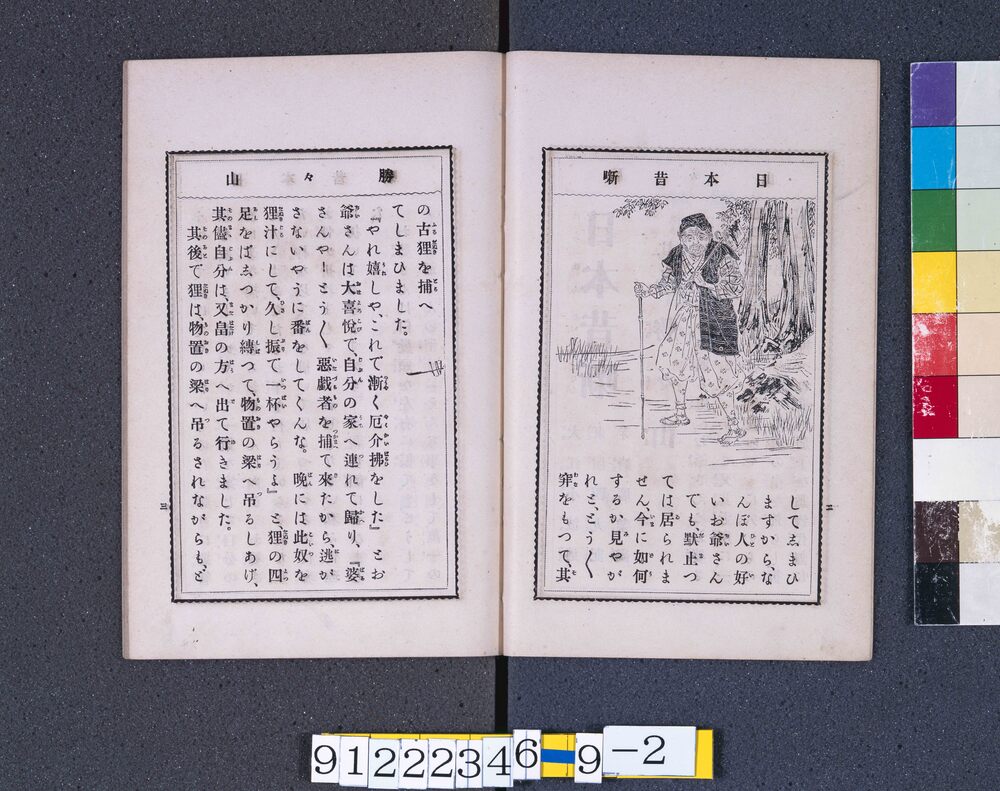 日本昔噺
してゑまひ
ますから、な
んぼ人の好
いお爺さん
でも、默止つ
ては居られま
せん、今に如何
するか見やが
れと、とう〱
穽をもつて、其
二
勝々山
の古狸を捕へ
てしまひました。
『やれ嬉しや、これで漸く厄介拂をした』とお
爺さんは大喜悦で自分の家へ連れて歸り、『婆
さんやーとう〱惡戯者を捕て來たから、逃が
さないやうに番をしてくんな。晩には此奴を
狸汁にして、久し振で一杯やらうよ』と狸の四
足をばゑつかり縛つて、物置の梁へ吊るしあげ、
其儘自分は、又畠の方へ出て行きました。
其後で狸は、物置の梁へ吊るされながらも、ど
三
91222346=9-2